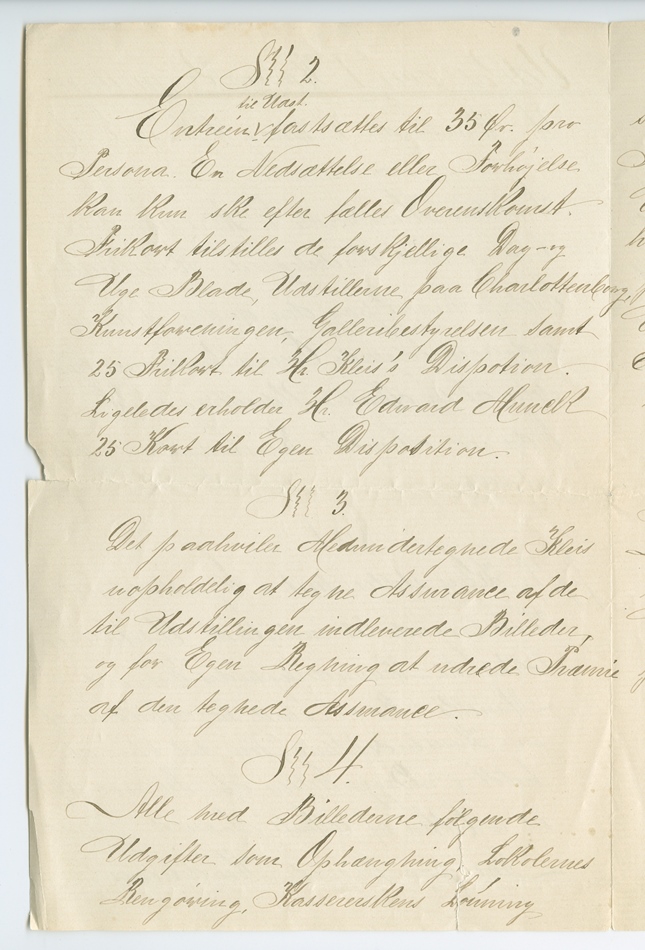 §§ 2.
til Udst.
Entreén fastsættes til 35 Ør. pro
Persona. En Nedsættelse eller Forhøjelse
kan kun ske efter fælles Overenskomst.
Frikort tilstilles de forskjellige Dag- og
Uge Blade, Udstillerne paa Charlottenborg,
Kunstforeningen, Galleribestyrelsen samt
25 Frikort til Hr. Kleis's Dispotion.
Ligeledes erholder Hr. Edward Munck
25 Kort til Egen Disposition.
§§ 3.
Det paahviler Medundertegnede Kleis
uopholdelig at tegne Assurance af de
til Udstillingen indleverede Billeder,
og for Egen Regning at udrede Præmie
af den tegnede Assurance.
§§ 4.
Alle med Billederne følgende
Udgifter som Ophængning, Lokalernes
Rengøring, Kassererskens Lönning